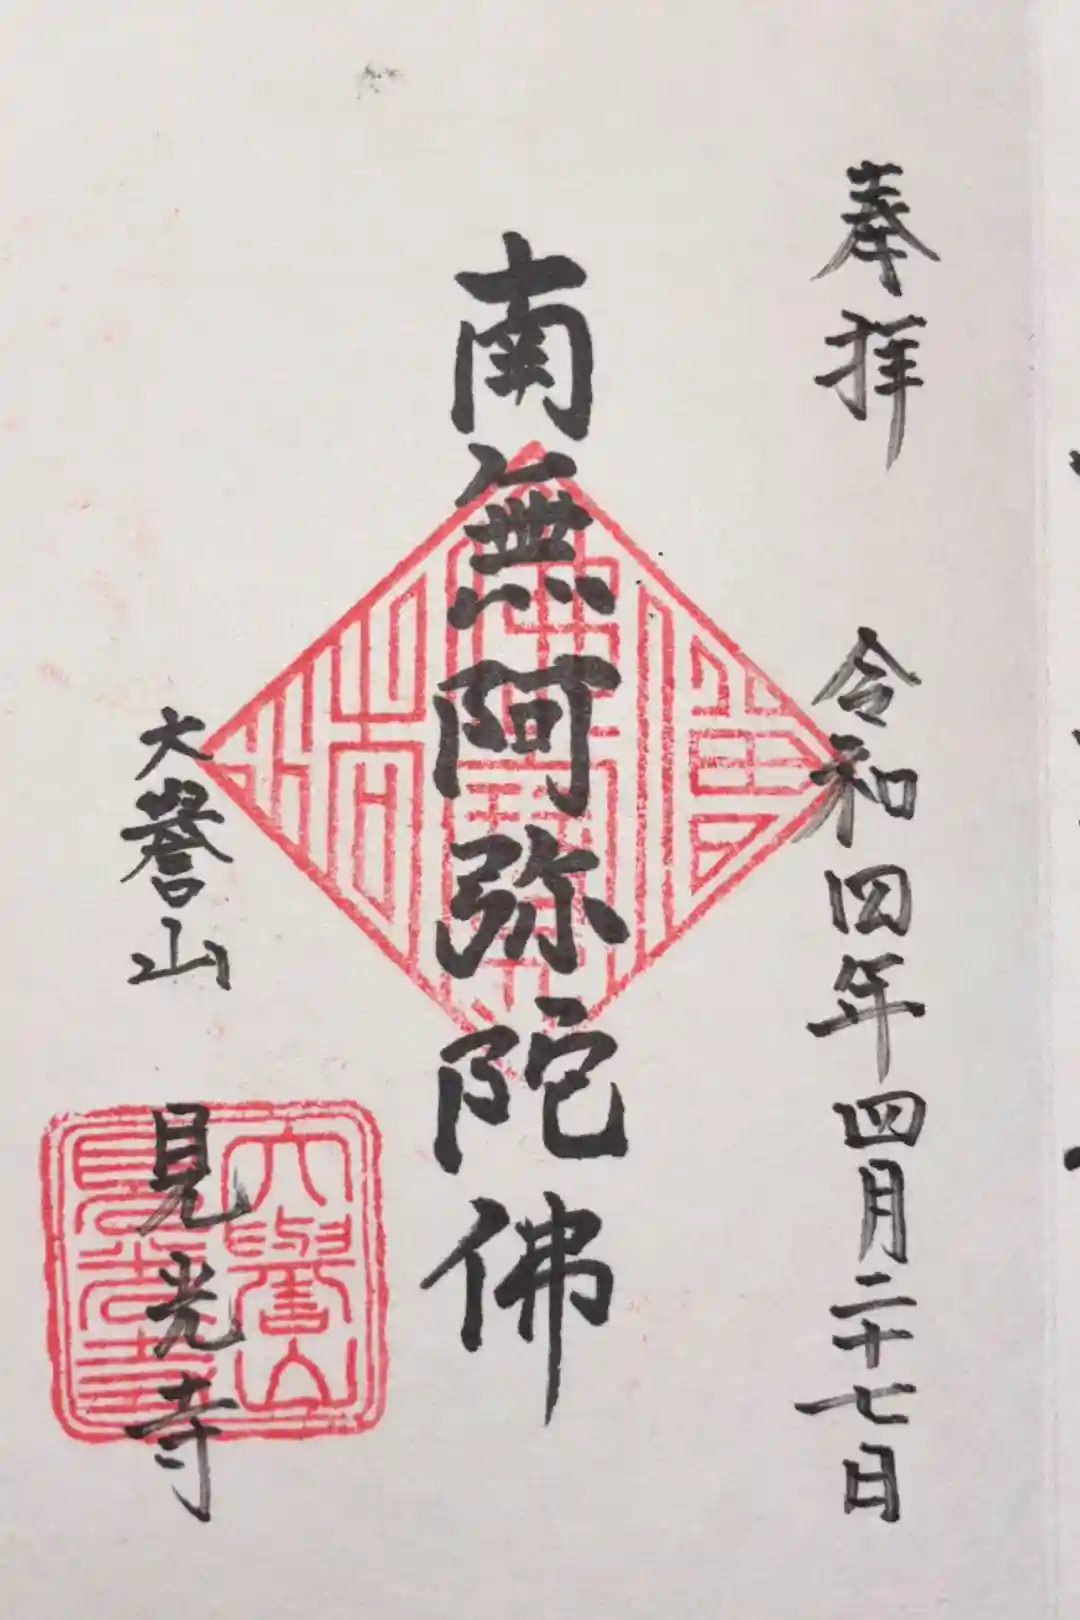 奉拝
令和四年四月二十七日
南無阿弥陀佛
大誉山
見光寺
大譽山
見光寺